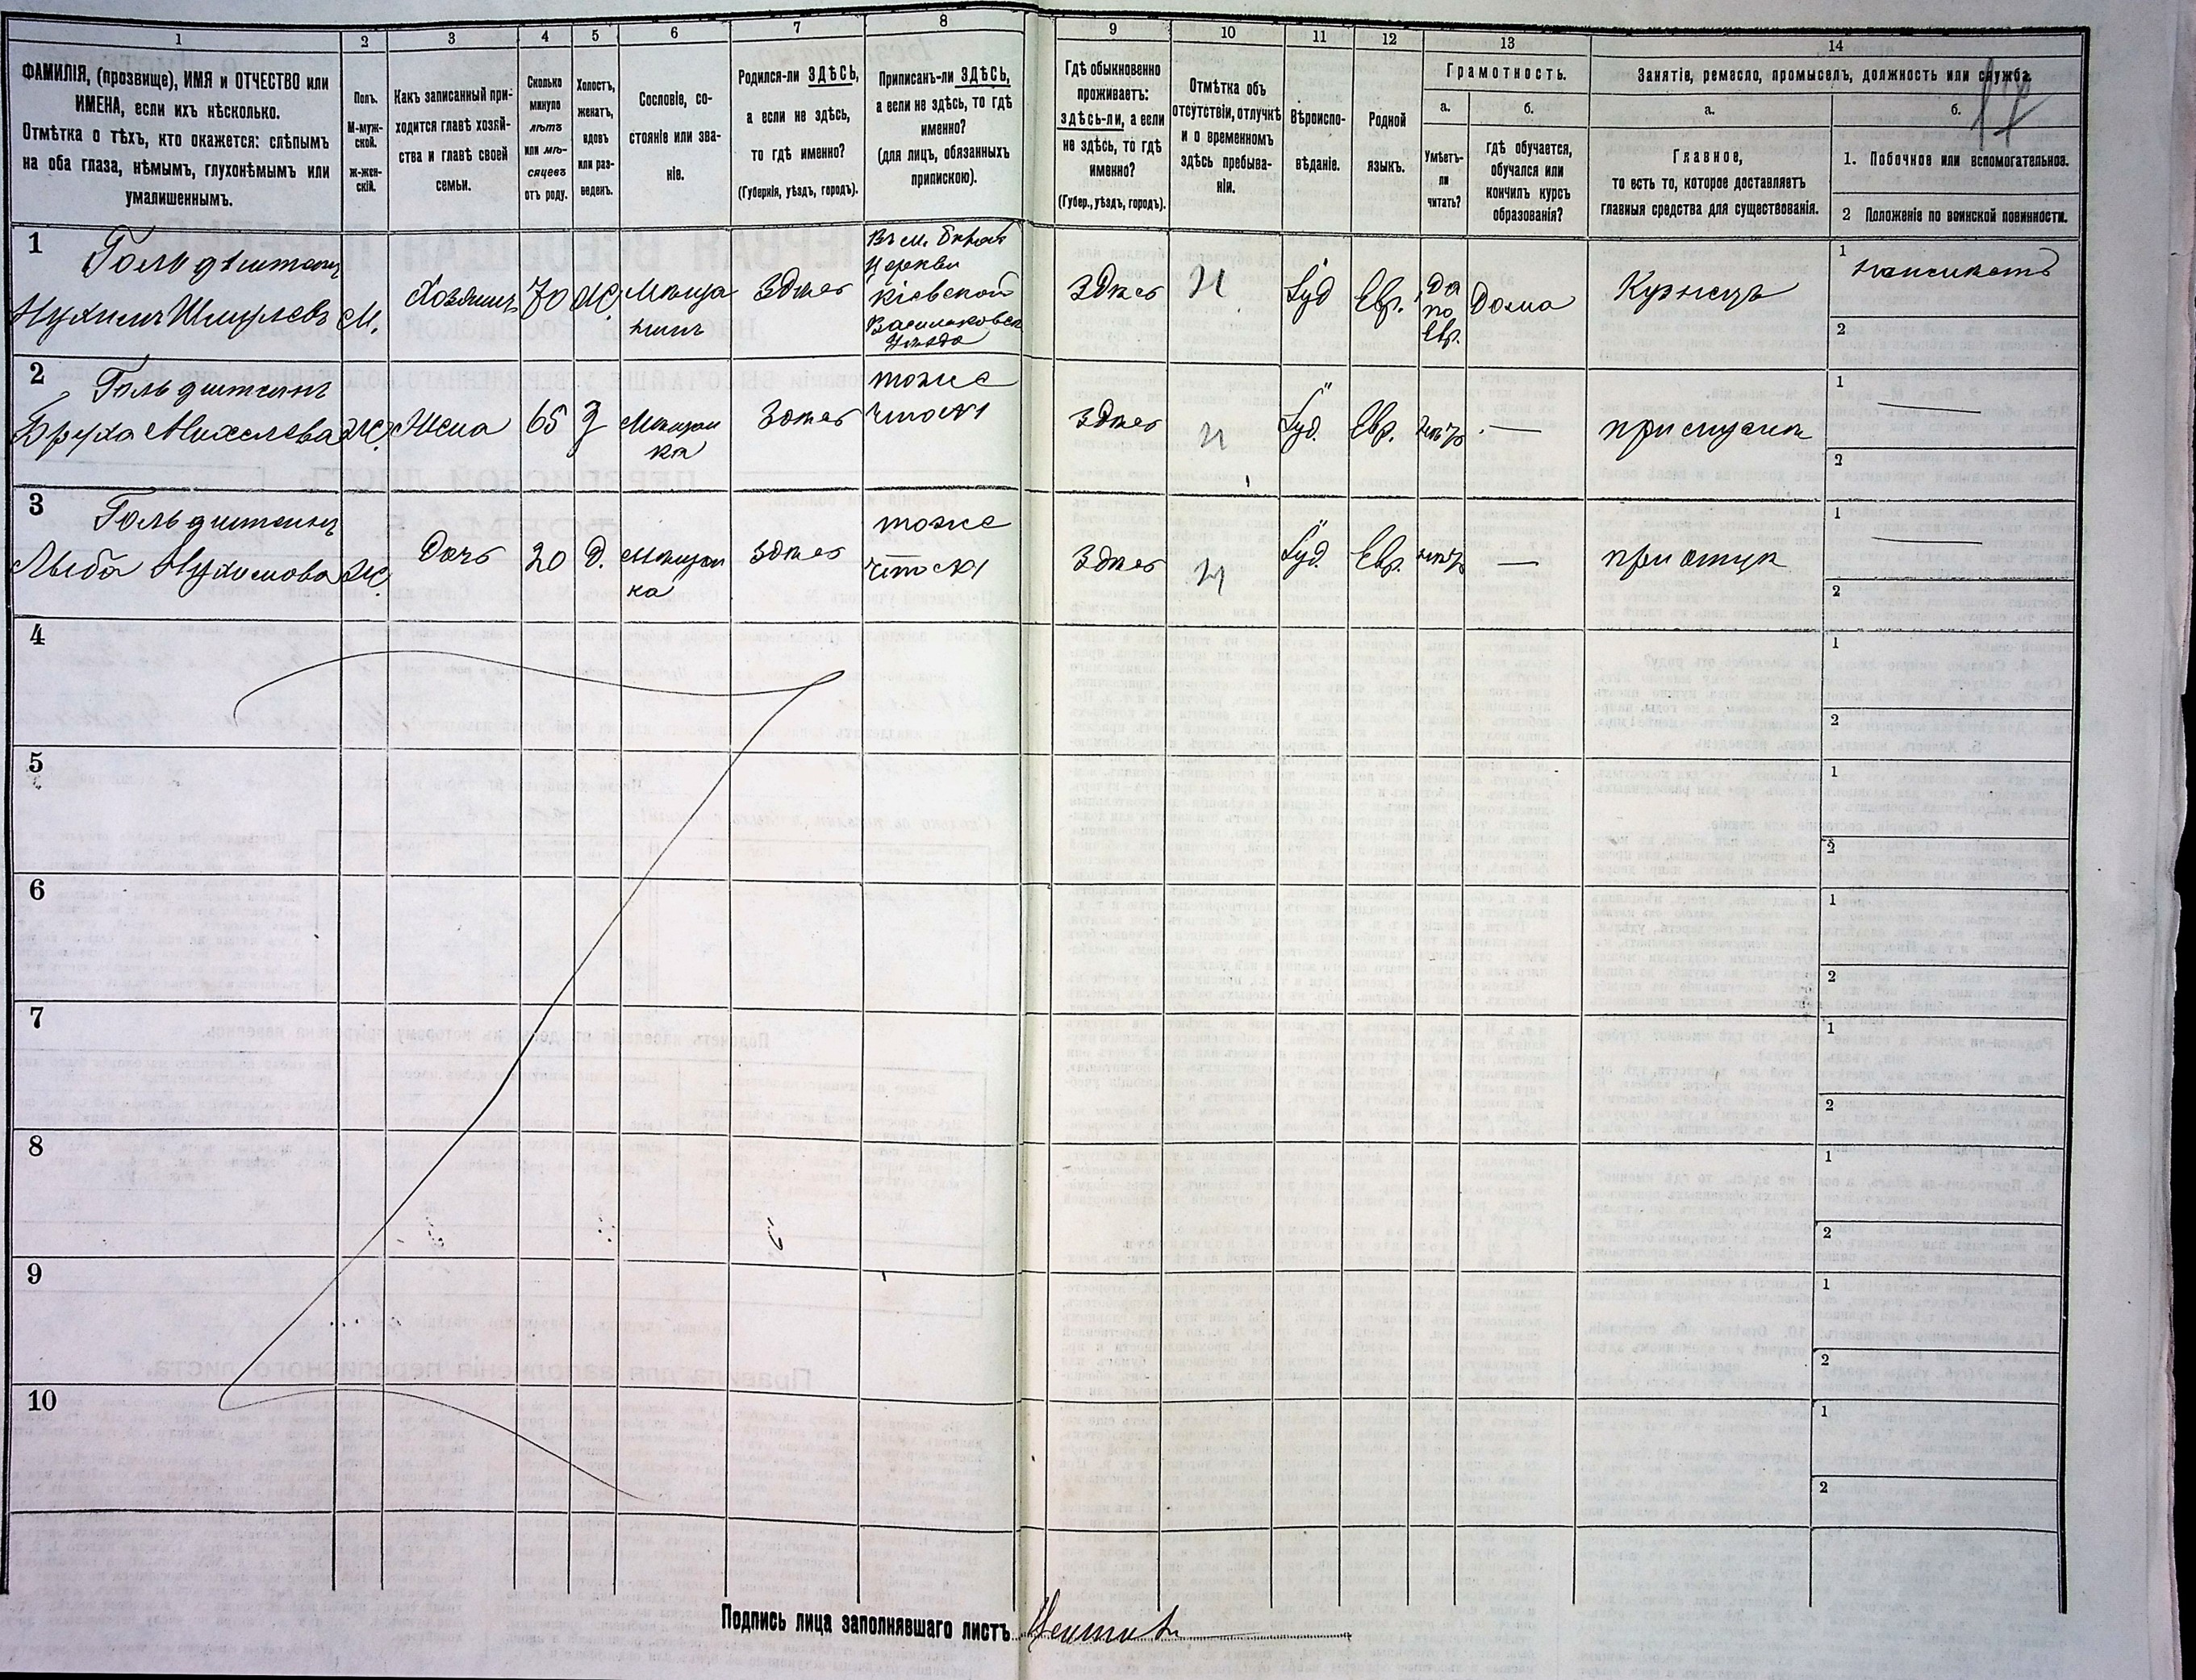 1 2 3 4 5 6 7 8 9 10 11 12 13 14
ФАМИЛІЯ, (прозвище), ИМЯ и ОТЧЕСТВО или
ИМЕНА, если ихъ нѣсколько.
Отмѣтка о тѣхъ, кто окажется: слѣпымъ
на оба глаза, нѣмымъ, глухонѣмымъ или
умалишеннымъ.
Полъ.
М-муж-
ской.
ж-жен-
скій.
Какъ записанный при-
ходится главѣ хозяй-
ства и главѣ своей
семьи.
Сколько
минуло
лѣтъ
или мѣ-
сяцевъ
отъ роду.
Холостъ,
женатъ,
вдовъ
или раз-
веденъ.
Сословіе, со-
стояніе или зва-
ніе.
Родился-ли ЗДѢСЬ,
а если не здѣсь,
то гдѣ именно?
(Губернія, уѣздъ, городъ).
Приписанъ-ли ЗДѢСЬ,
а если не здѣсь, то гдѣ
именно?
(для лицъ, обязанныхъ
припискою).
Гдѣ обыкновенно
проживаетъ:
здѣсь-ли, а если
не здѣсь, то гдѣ
именно?
(Губер., уѣздъ, городъ).
Отмѣтка объ
отсутствіи, отлучкѣ
и о временномъ
здѣсь пребыва-
ніи.
Вѣроиспо-
вѣданіе.
Родной
языкъ.
Грамотность.
а.
Умѣетъ-
ли
читать?
б.
гдѣ обучается,
обучался или
кончилъ курсъ
образованія?
Занятіе, ремесло, промыселъ, должность или служба.
а.
Главное,
то есть то, которое доставляетъ
главныя средства для существованія.
б.
1. Побочное или вспомогательное.
2 Положеніе по воинской повинности.
17
1
Гольдштейнъ
Нухимъ Шмулевъ
М.
Хозяинъ
70
Ж.
Мѣща
нинъ
Здѣсь
Въ м. Бѣлой
Церкви
Кіевской
Васильковск
Уѣзда
Здѣсь
Іуд
Евр.
Да
по
Евр.
Дома
Кузнецъ
1
2
2
Гольдштейнъ
Бруха Михелева
Ж.
Жена
65
З
Мѣщан
ка
Здѣсь
тоже
что №1
Здѣсь
Іуд.
Евр.
нѣтъ
—
при мужѣ
1 —
2
3
Гольдштейнъ
Лыба Нухимова
Ж.
Дочь
20
Д.
Мѣщан
ка
Здѣсь
тоже
что №1
Здѣсь
Іуд.
Евр.
нѣтъ
—
при отцѣ
1 —
2
4
1
2
5
1
2
6
1
2
7
1
2
8
1
2
9
1
2
10
1
2
Подпись лица заполнявшаго листъ